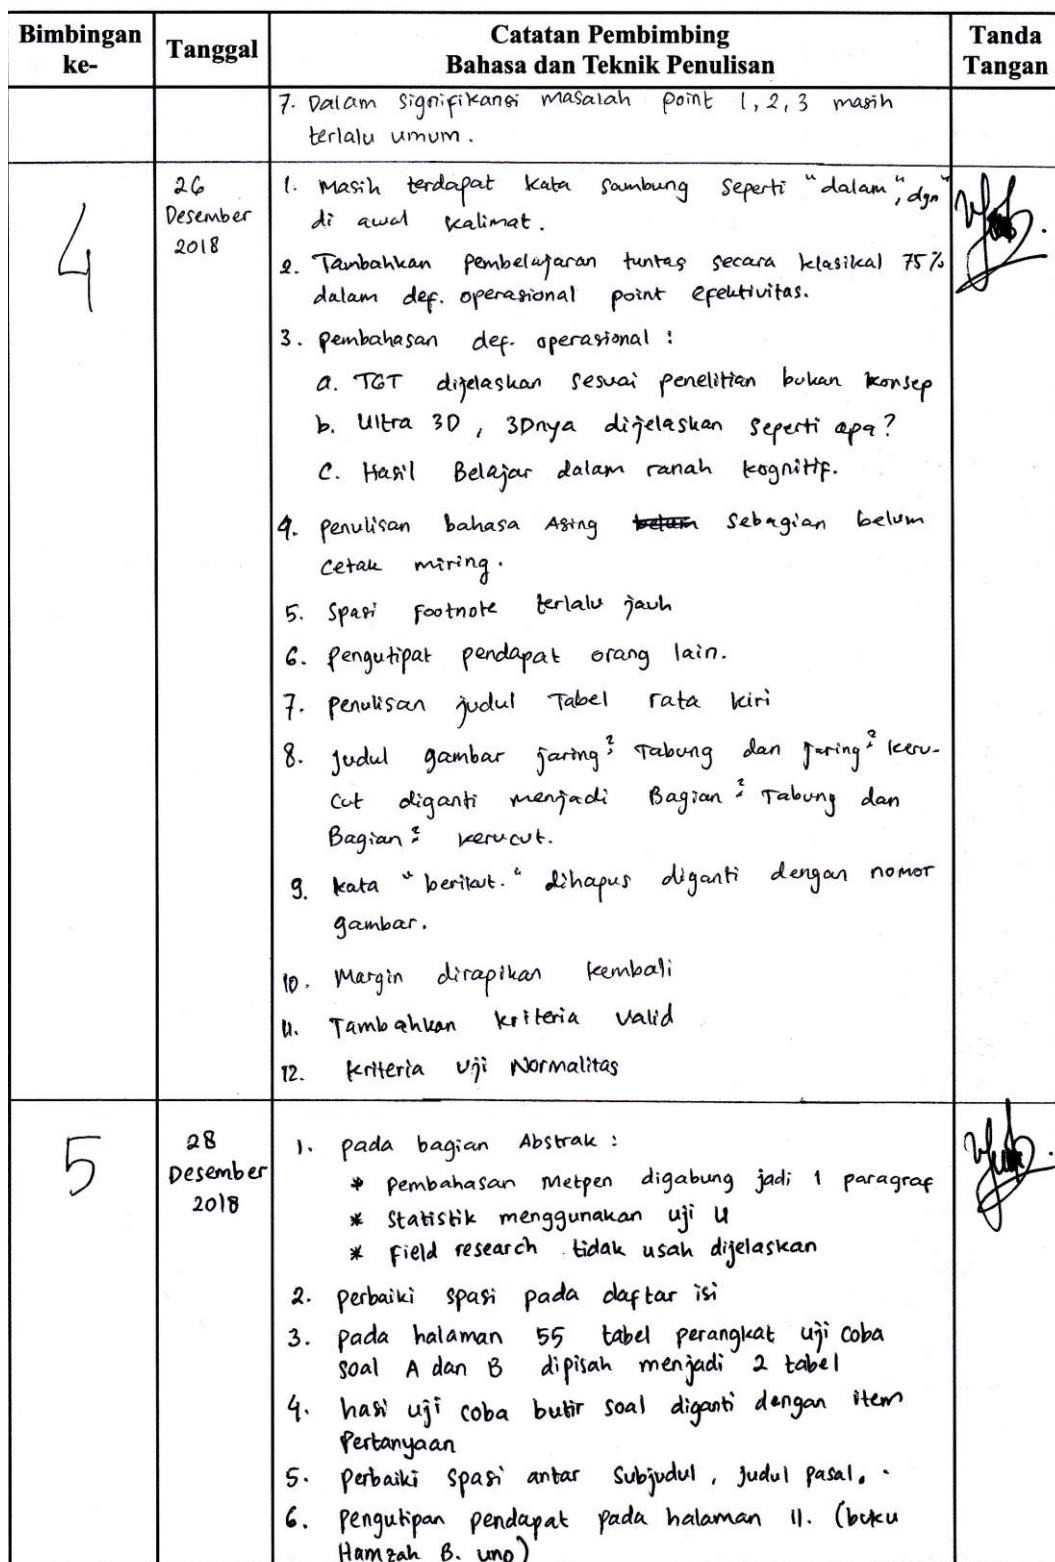 Bimbingan ke-
Tanggal
Catatan Pembimbing
Bahasa dan Teknik Penulisan
Tanda Tangan
7. Dalam signifikansi masalah point 1, 2, 3 masih
terlalu umum.
4
26
Desember
2018
1. Masih terdapat kata sambung seperti "dalam", "dgn"
di awal kalimat.
2. Tambahkan pembelajaran tuntas secara klasikal 75%
dalam def. operasional point efektivitas.
3. pembahasan def. operasional :
a. TGT dijelaskan sesuai penelitian bukan konsep
b. Ultra 3D, 3Dnya dijelaskan seperti apa?
c. Hasil Belajar dalam ranah kognitif.
4. penulisan bahasa Asing belum sebagian belum
cetak miring.
5. Spasi Footnote terlalu jauh
6. pengutipat pendapat orang lain.
7. penulisan judul Tabel rata kiri
8. judul gambar jaring² Tabung dan jaring² keru-
cut diganti menjadi Bagian² Tabung dan
Bagian² kerucut.
9. kata "berikut." dihapus diganti dengan nomor
gambar.
10. Margin dirapikan kembali
11. Tambahkan kriteria valid
12. kriteria Uji Normalitas
5
28
Desember
2018
1. pada bagian Abstrak :
* pembahasan Metpen digabung jadi 1 paragraf
* Statistik menggunakan uji U
* Field research tidak usah dijelaskan
2. perbaiki spasi pada daftar isi
3. pada halaman 55 tabel perangkat uji coba
soal A dan B dipisah menjadi 2 tabel
4. hasi uji coba butir soal diganti dengan item
Pertanyaan
5. Perbaiki spasi antar Subjudul, Judul pasal.
6. pengutipan pendapat pada halaman 11. (buku
Hamzah B. uno)